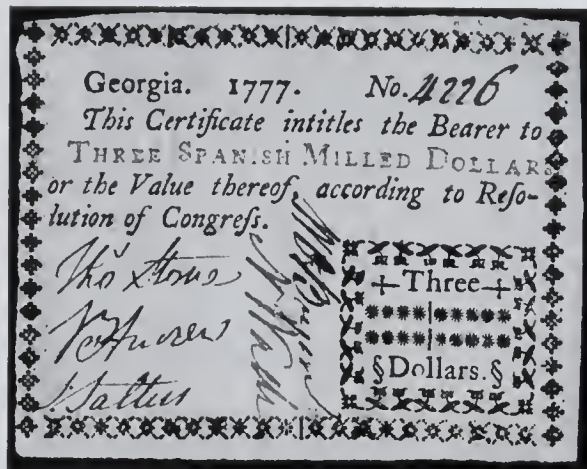 Georgia. 1777. No. 4226
This Certificate intitles the Bearer to
THREE SPANISH MILLED DOLLARS
or the Value thereof, according to Reſo-
lution of Congreſs.
Thoˢ Stone
Three
Dollars.